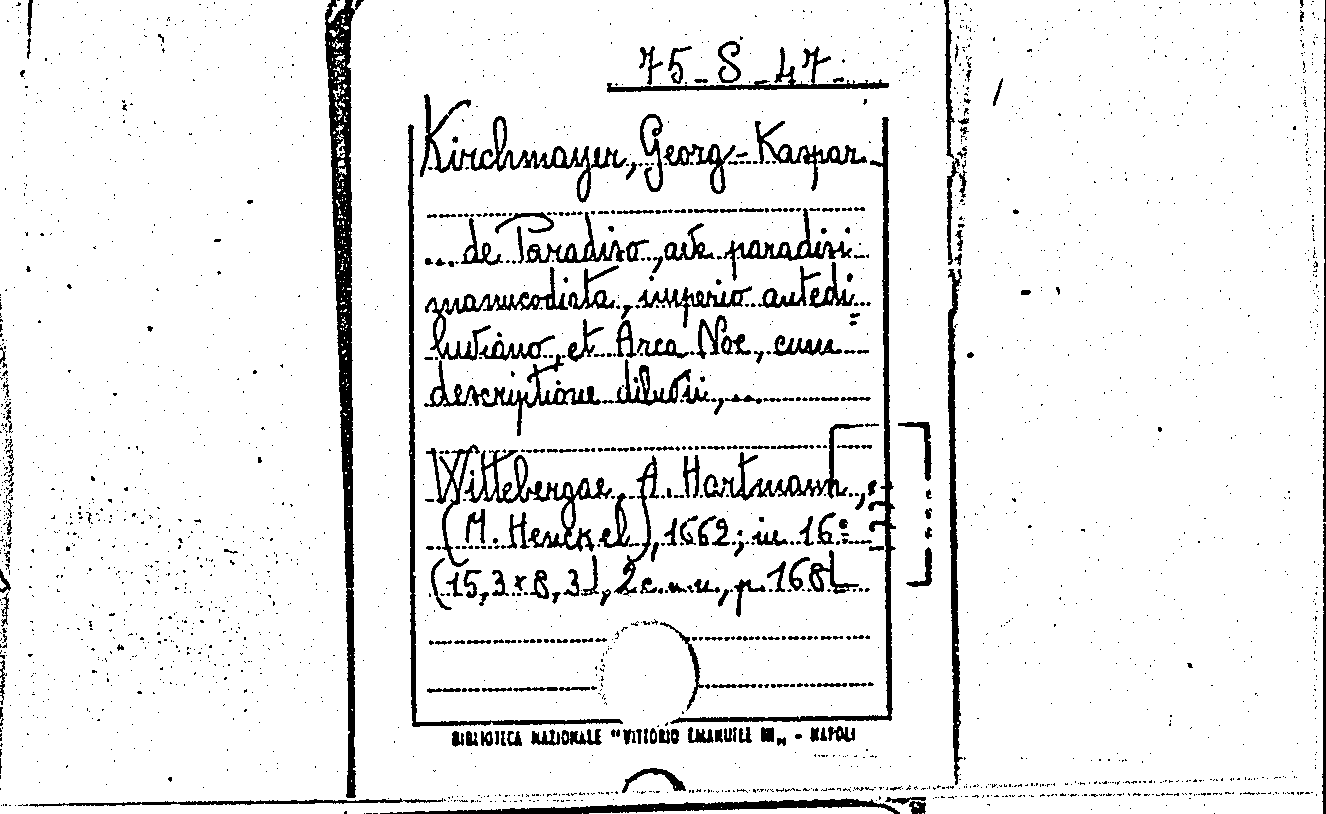 75-S-47.
Kirchmayer, Georg-Kaspar.
... de Paradiso, ave paradisi
manucodiata, imperio antedi=
luviano, et Arca Noe, cum
descriptione diluvii, ...
Wittebergae, A. Hartmann,
(M. Henckel), 1662; in 16º
(15,3x8,3), 2c.n.n., p. 168
BIBLIOTECA NAZIONALE "VITTORIO EMANUELE III„ - NAPOLI